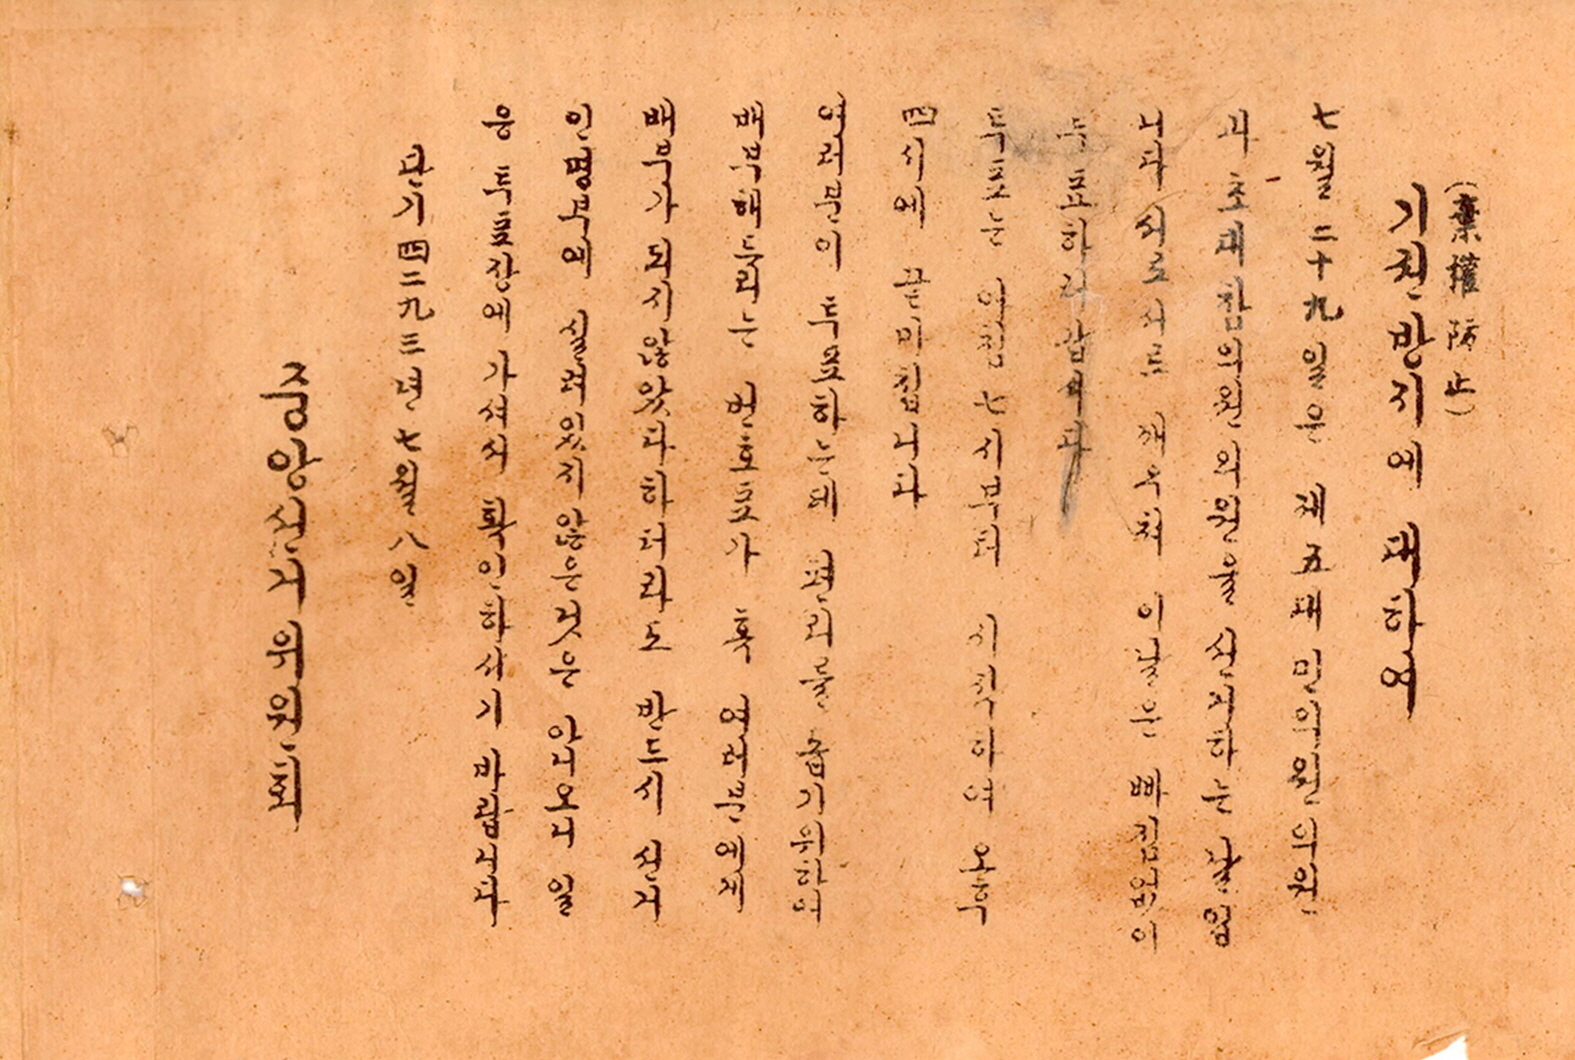 (棄權防止)
기권방지에 대하여
七월 二十九일은 제五대 민의원의원
과 초대 참의원의원을 선거하는 날입
니다 서로서로 깨우쳐 이날은 빠짐없이
투표하러 갑시다
투표는 아침 七시부터 시작하여 오후
四시에 끝마칩니다
여러분이 투표하는데 편리를 돕기위하여
배부해드리는 번호표가 혹 여러분에게
배부가 되지않았다하더라도 반드시 선거
인명부에 실려있지않은것은 아니오니 일
응 투표장에 가셔서 확인하시기 바랍니다
단기 四二九三년 七월 八일
중앙선거위원회